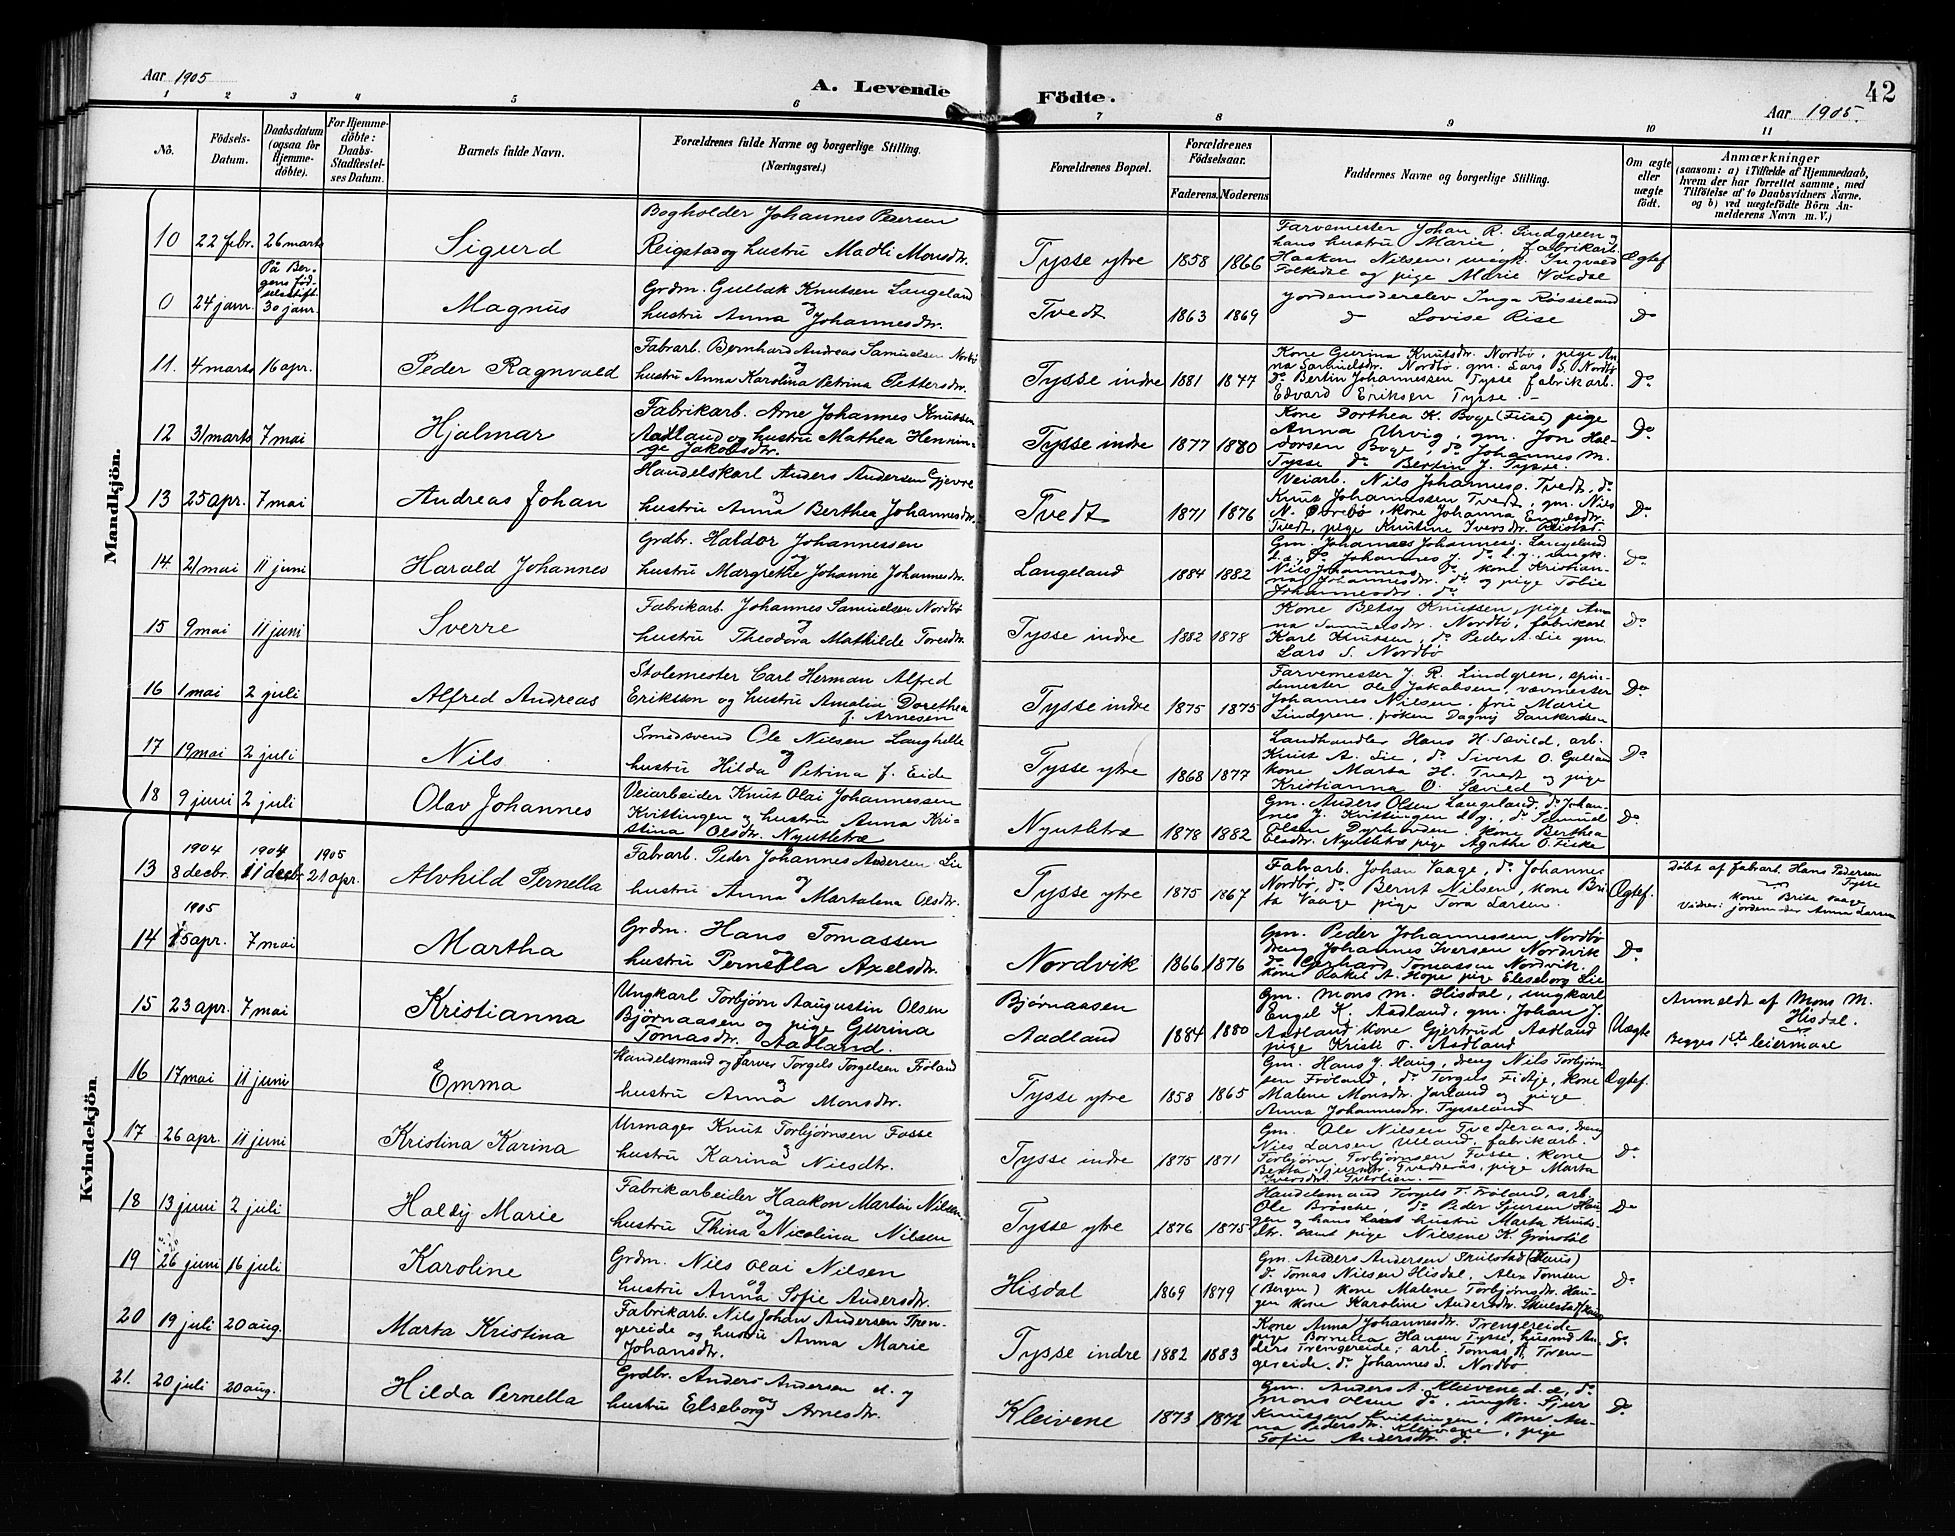 Aar 1905
A. Levende Födte.
42
Aar 1905.
1 2 3 4 5 6 7 8 9 10 11
Nö.
Födsels-Datum.
Daabsdatum (ogsaa for Hjemmedöbte).
For Hjemmedöbte: Daabs-Stadfæstelses Datum.
Barnets fulde Navn.
Forældrenes fulde Navne og borgerlige Stilling. (Næringsvei.)
Forældrenes Bopæl.
Forældrenes Födselsaar.
Faderens. Moderens
Faddernes Navne og borgerlige Stilling.
Om ægte eller uægte födt.
Anmærkninger
(saasom: a) i Tilfælde af Hjemmedaab, hvem der har forrettet samme, med Tilföielse af to Daabsvidners Navne, og b) ved uægtefödte Börn Anmelderens Navn m. V.)
Mandkjön.
10 22 febr. 26 marts Sigurd
Bogholder Johannes Pedersen
Reigstad og hustru Madli Monsdtr.
Tysse ytre 1858 1866
Farvemester Johan R. Lindgreen og
hans hustru Marie, fabrikarb.
Haakon Nilsen, ungk. Ingvald
Folkedal og pige Marie Vasdal
Ægtef
0 24 janr. På Bergens fødselsstift. 30 janr. Magnus
Grdm. Gullak Knutsen Langeland
og hustru Anna Johannesdtr.
Tvedt 1863 1869
Jordemoderelev Inga Røsseland
do Lovise Rise
do
11. 4 marts 16 apr. Peder Ragnvald
Fabrarb. Bernhard Andreas Samuelsen Nordbø
og hustru Anna Karolina Petrina Pettersdtr.
Tysse indre 1881 1877
Kone Gurina Knutsdr. Nordbø, pige An-
na Samuelsdr. Nordbø. gm. Lars S. Nordbø
do Bertin Johannessen Tysse fabrikarb.
Edvard Eriksen Tysse –
Do
12 31 marts 7 mai Hjalmar
Fabrikarb. Arne Johannes Knutsen
Aadland og hustru Mathea Hennin-
ge Jakobsdtr.
Tysse indre 1877 1880
Kone Dorthea K. Boge (Fuse) pige
Anna Urvig, gm. Jon Hal-
dorsen Boge, do Johannes M.
Tysse do Bertin J. Tysse.
Do
13 25 apr. 7 mai Andreas Johan
Handelskarl Anders Andersen Gjevre
og hustru Anna Berthea Johannesdtr.
Tvedt 1871 1876
Veiarb. Nils Johannesp. Tvedt, do
Knut Johannessen Tvedt, gm. Nils
N. Øvrebø, kone Johanna Engelsdtr.
Tvedt, pige Knutine Iversdr.
Do
14. 21 mai 11 juni Harald Johannes
Grdbr. Haldor Johannessen
og hustru Margrethe Johanne Johannesdtr.
Langeland 1884 1882
Gm. Johannes Johanness. Langeland
Johannes J. do l. y., ungk.
Nils Johanness. do kone Kristian-
na Johannesdtr. do og pige Tobie
Johannesdtr. do
Do
15 9 mai 11 juni Sverre
Fabrikarb. Johannes Samuelsen Nordbø
og hustru Theodora Mathilde Toresdtr.
Tysse indre 1882 1878
Kone Betsy Knutsen, pige An-
na Samuelsdr. Nordbø, fabrikarb
Karl Knutsen, do Peder A. Lie gm.
Lars S. Nordbø
Do
16 1 mai 2 juli Alfred Andreas
Stolemester Carl Herman Alfred
Erikson og hustru Amalia Dorethea
f. Arnesen
Tysse indre 1875 1875
Farvemester J. R. Lindgren, spin-
demester Ole Jakobsen, vævmester
Johannes Nilsen, fru Marie
Lindgren, frøken Dagny Dankertsen
Do
17 19 mai 2 juli Nils
Smedsvend Ole Nilsen Langhelle
og hustru Hilda Petrina f. Eide
Tysse ytre 1868 1877
Landhandler Hans H. Sævild, arb.
Knut A. Lie, do Sivert O. Gulland
kone Marta H. Tvedt og pige
Kristianna O. Sævild
Do
18 9 juni 2 juli Olav Johannes
Veiarbeider Knut Olai Johannessen
Kvittingen og hustru Anna Kri-
stina Olsdtr. Nyutletræ
Nyutletræ 1878 1882
Gm. Anders Olsen Langeland, do Johan-
nes J. Kvittingen do y., do Samuel
Olsen Dyrhovden. kone Berthea
Olsdtr. Nyutletræ pige Agathe O.
Do
Kvindekjön.
13 1904 8 decbr. 1904 11 decbr 1905 21 apr. Alvhild Pernella
Fabrarb. Peder Johannes Andersen Lie
og hustru Anna Martalena Olsdtr.
Tysse ytre 1875 1867
Fabrarb. Johan Vaage, do Johannes
Nordbø, do Bernt Nilsen, kone Bri-
ta Vaage pige Tora Larsen.
Ægtef.
Døbt af fabrarb. Hans Pedersen
Tysse
Vidner: kone Brita Vaage
jordemoder Anna Larsen
14 1905 15 apr. 7 mai Martha
Grdm. Hans Tomassen
og hustru Pernella Axelsdtr.
Nordvik 1866 1876
Gm. Peder Johannessen Nordbø
dreng Johannes Iversen Nordvik
do Gerhard Tomassen Nordvik.
kone Rakel A. Hope pige Elseborg Lie
Do
15 23 apr. 7 mai Kristianna
Ungkarl Torbjørn Aaugustin Olsen
Bjørnaasen og pige Gurina
Tomasdtr. Aadland.
Bjørnaasen
Aadland 1884 1880
Gm. Mons M. Hisdal, ungkarl
Engel K. Aadland, gm. Johan J.
Aadland kone Gjertrud Aadland
pige Kristi T. Aadland
Uægte
Anmeldt af Mons M.
Hisdal.
Begges 1ste leiermaal
16 17 mai 11 juni Emma
Handelsmand og farver Torgels Torgelsen Frøland
og hustru Anna Monsdtr.
Tysse ytre 1858 1865
Gm. Hans J. Haug, dreng Nils Torbjørn-
sen Frøland, do Torgels Fidtje, kone
Malene Monsdr. Jarland og pige
Anna Johannesdr. Tysseland
Ægtef.
17 26 apr. 11 juni Kristina Karina
Urmager Knut Torbjørnsen Fosse
og hustru Karina Nilsdtr.
Tysse indre 1875 1871
Gm. Ole Nilsen Tvedteraas, dreng
Nils Larsen Ulland, fabrikarb.
Torbjørn Torbjørnsen Fosse, kone
Berta Sjursdr. Tvedteraas, pige Marta
Iversdr. Tverlien. –
Do
18 13 juni 2 juli Haldy Marie
Fabrikarbeider Haakon Martin Nilsen
og hustru Thina Nicolina Nilsen
Tysse ytre 1876 1875
Handelsmand Torgels T. Frøland, arb.
Ole Brøsche, do Peder Sjursen Hau-
gen og hans hustru Marta Knuts-
dtr. samt pige Nilsene K. Grønstøl
Do
19 26 juni 16 juli Karoline
Grdm. Nils Olai Nilsen
og hustru Anna Sofie Andersdtr.
Hisdal 1869 1879
Gm. Anders Andersen Skulstad (Haus)
do Tomas Nilsen Hisdal, Alex Tomsen
(Bergen) kone Malene Torbjørnsdr. Hau-
gen kone Karoline Andersdtr. Skulstad, Haus
Do
20 19 juli 20 aug. Marta Kristina
Fabrikarb. Nils Johan Andersen Tren-
gereide og hustru Anna Marie
Johansdtr.
Tysse indre 1882 1883
Kone Anna Johannesdr. Trengereide
pige Bornella Hansen Tysse, husmd An-
ders Trengereide, arb. Tomas A. Tren-
gereide, do Johannes S. Nordbø
Do
21. 20 juli 20 aug. Hilda Pernella
Grdbr. Anders Andersen d. y
og hustru Elseborg Arnesdtr.
Kleivene 1873 1872
Gm. Anders A. Kleivene d. æ., do
Mons Olsen do, ungk. Sjur
Knutsen Kvittingen, kone An-
na Pedersdr. Kleivene, pige
Sofie Andersdtr. do
Do